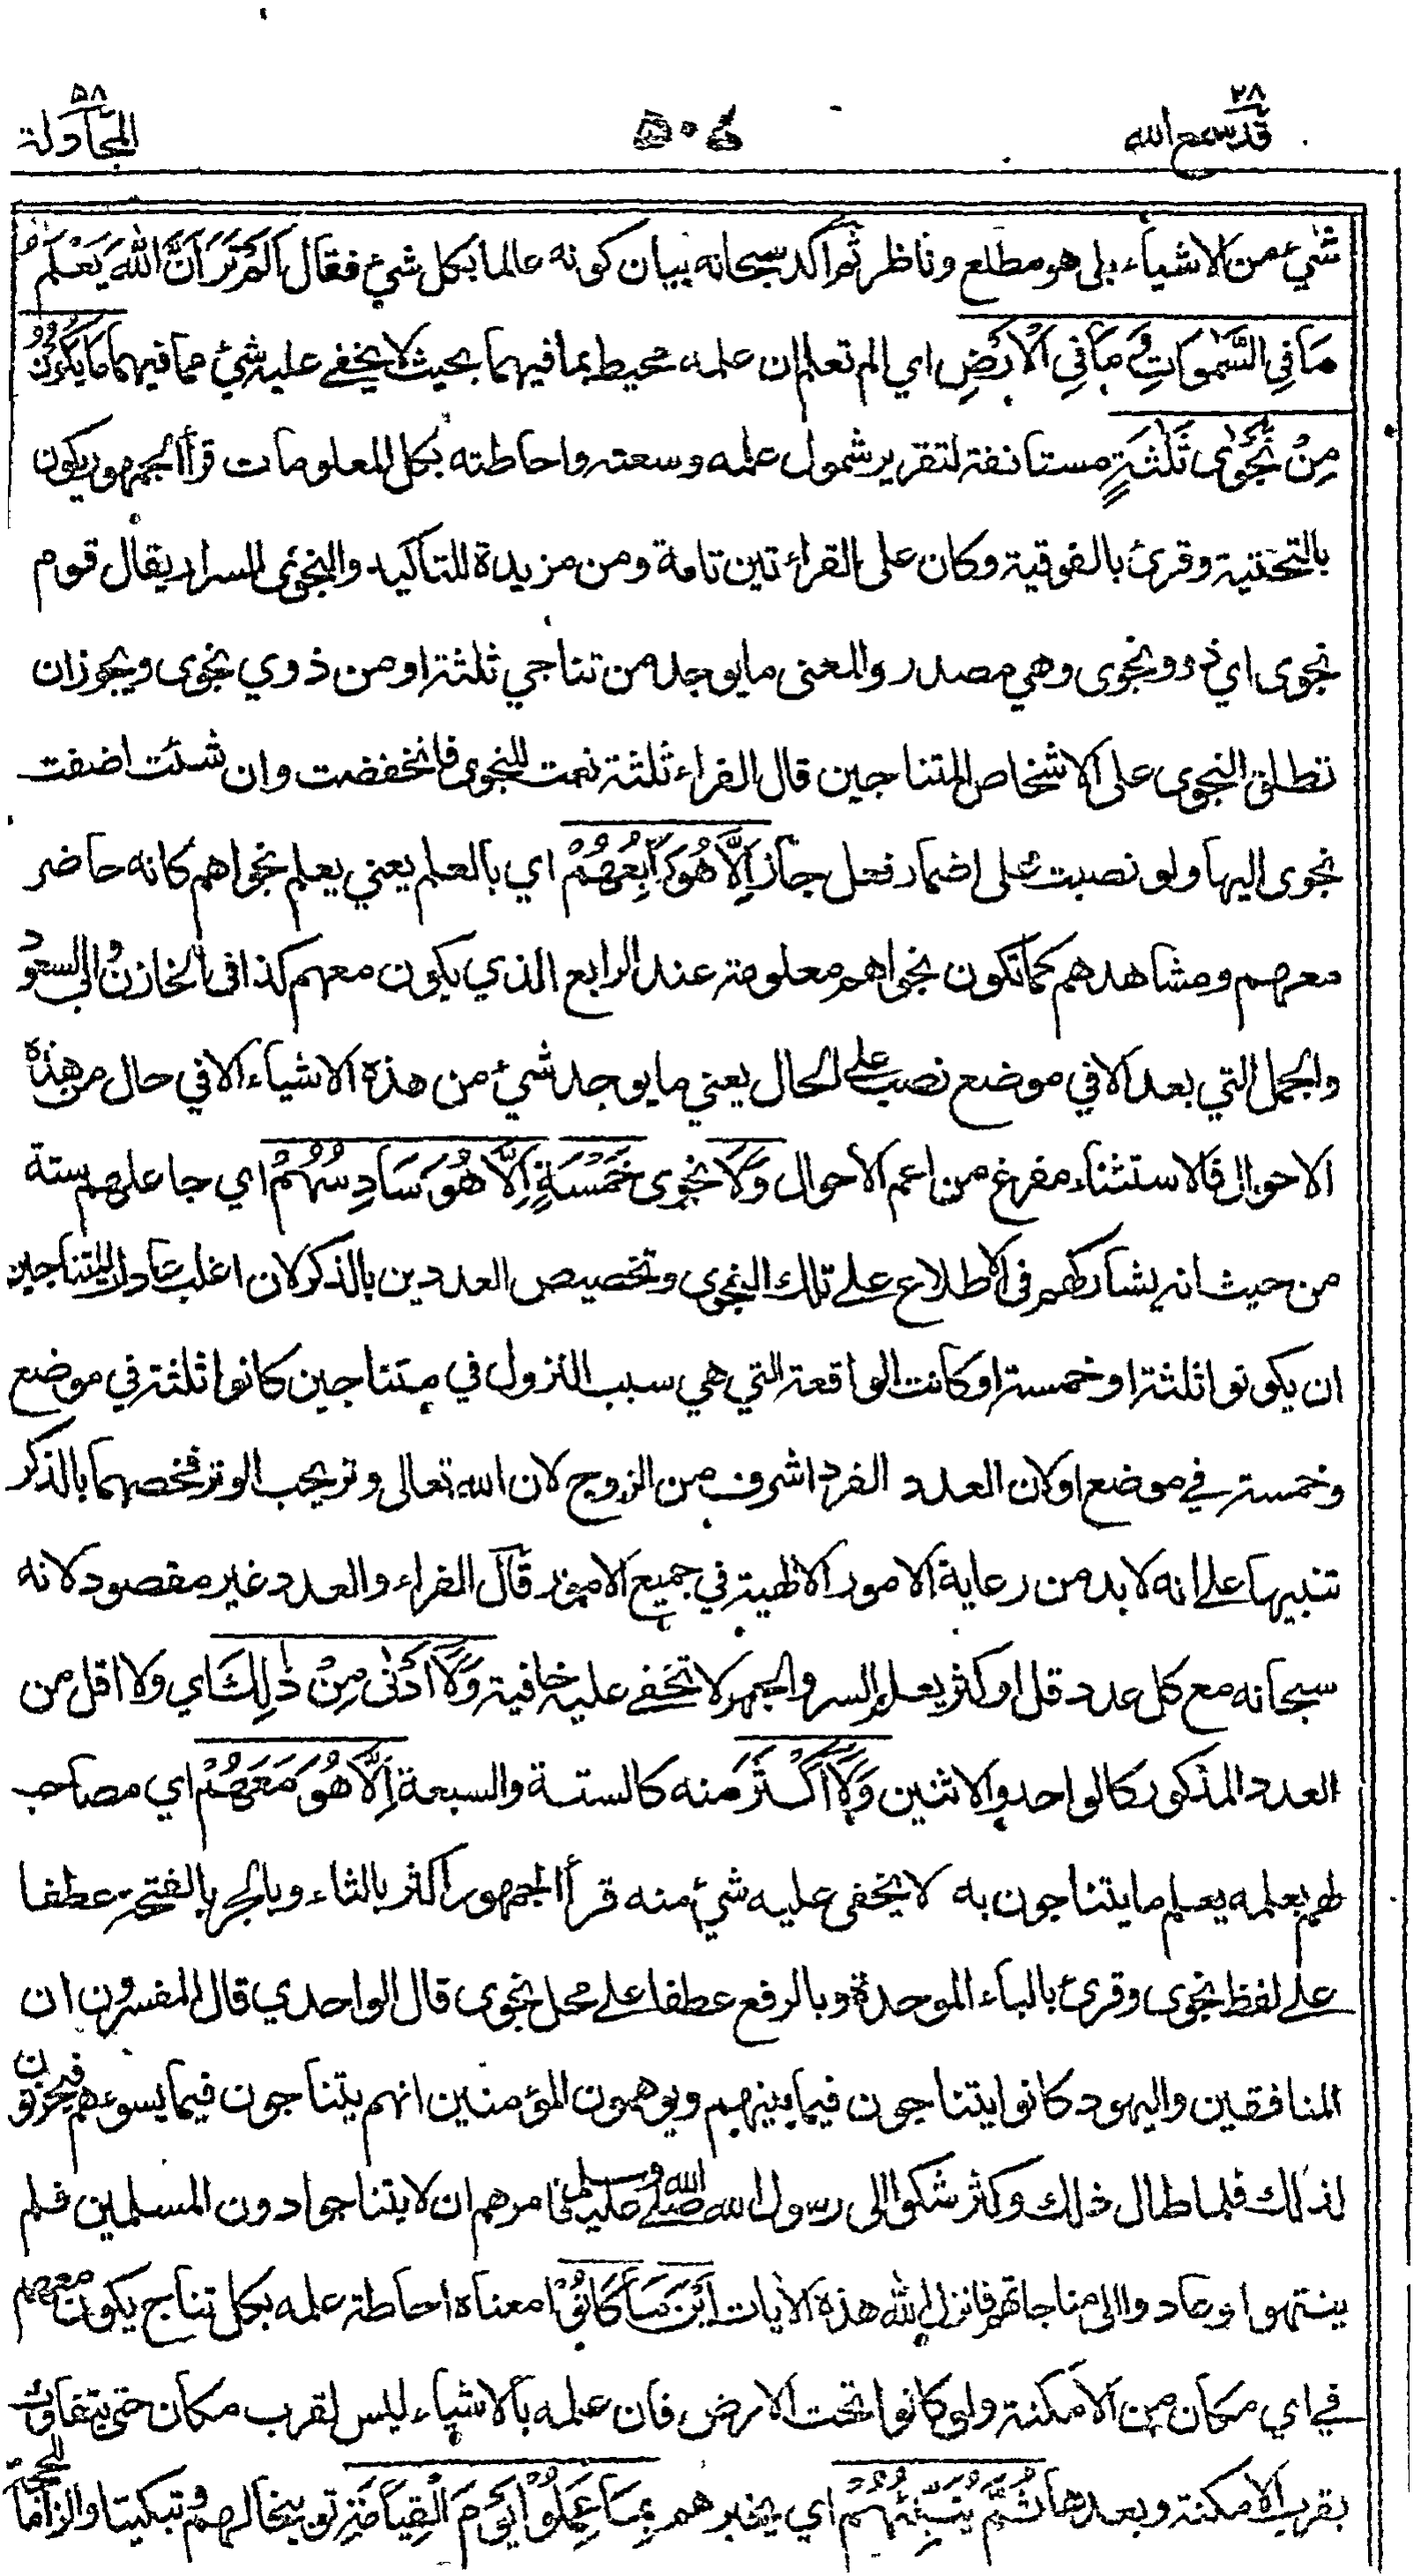 قد سمع الله ٢٨
٥٠٤
المجادلة ٥٨
شيء من الاشياء بلى هو مطلع وناظر ثم اكد سبحانه ببيان كونه عالما بكل شيء فقال اَلَمْ تَرَ اَنَّ اللّٰهَ يَعْلَمُ
مَا فِي السَّمٰوَاتِ وَمَا فِي الْاَرْضِ اي الم تعلم ان علمه محيط بما فيهما بحيث لا يخفے عليه شيء مما فيهما مَا يَكُوْنُ
مِنْ نَّجْوٰى ثَلٰثَةٍ مستانفة لتقرير شمول علمه وسعته واحاطته بكل المعلومات قرأ الجمهور يكون
بالتحتية وقرئ بالفوقية وكان على القراءتين تامة ومن مزيدة للتاكيد والنجوى السرار يقال قوم
نجوى اي ذوو نجوى وهي مصدر والمعنى ما يوجد من تناجي ثلثة او من ذوي نجوى ويجوز ان
تطلق النجوى على الاشخاص المتناجين قال الفراء ثلثة نعت للنجوى فانخفضت وان شئت اضفت
نجوى اليها ولو نصبت على اضمار فعل جاز اِلَّا هُوَ رَابِعُهُمْ اي بالعلم يعني يعلم نجواهم كانه حاضر
معهم ومشاهدهم كما تكون نجواهم معلومة عند الرابع الذي يكون معهم كذا فى الخازن وابي السعود
والجمل التي بعد الا في موضع نصب على الحال يعني ما يوجد شيء من هذه الاشياء الا في حال من هذه
الاحوال فالاستثناء مفرغ من اعم الاحوال وَلَا نجوى خَمْسَةٍ اِلَّا هُوَ سَادِسُهُمْ اي جاعلهم ستة
من حيث انه يشاركهم فى الاطلاع علے تلك النجوى وتخصيص العددين بالذكر لان اغلب عادات المتناجين
ان يكونوا ثلثة او خمسة او كانت الواقعة التي هي سبب النزول في متناجين كانوا ثلثة في موضع
وخمسة في موضع او لان العدد الفرد اشرف من الزوج لان الله تعالى وتر يحب الوتر فخصهما بالذكر
تنبيها علے انه لا بد من رعاية الامور الالهية في جميع الامور قال الفراء والعدد غير مقصود لانه
سبحانه مع كل عدد قل او كثر يعلم السر والجهر لا تخفے عليه خافية وَلَا اَدْنٰى مِنْ ذٰلِكَ اي ولا اقل من
العدد المذكور كالواحد والاثنين وَلَا اَكْثَرَ منه كالستة والسبعة اِلَّا هُوَ مَعَهُمْ اي مصاحب
لهم بعلمه يعلم ما يتناجون به لا يخفى عليه شيء منه قرأ الجمهور اكثر بالثاء وبالجر بالفتحة عطفا
علے لفظ نجوى وقرئ بالباء الموحدة وبالرفع عطفا علے محل نجوى قال الواحدي قال المفسرون ان
المنافقين واليهود كانوا يتناجون فيما بينهم ويوهمون المؤمنين انهم يتناجون فيما يسوءهم فيحزنون
لذلك فلما طال ذلك وكثر شكوا الى رسول الله صلے الله عليه وسلم فامرهم ان لا يتناجوا دون المسلمين فلم
ينتهوا وعادوا الى مناجاتهم فانزل الله هذه الآيات اَيْنَ مَا كَانُوْا معناه احاطة علمه بكل تناج يكون معهم
في اي مكان من الامكنة ولو كانوا تحت الارض فان علمه بالاشياء ليس لقرب مكان حتى يتفاوت
بقرب الامكنة وبعدها ثُمَّ يُنَبِّئُهُمْ اي يخبرهم بِمَا عَمِلُوْا يَوْمَ الْقِيَامَةِ توبيخا لهم وتبكيتا والزاما للحجة